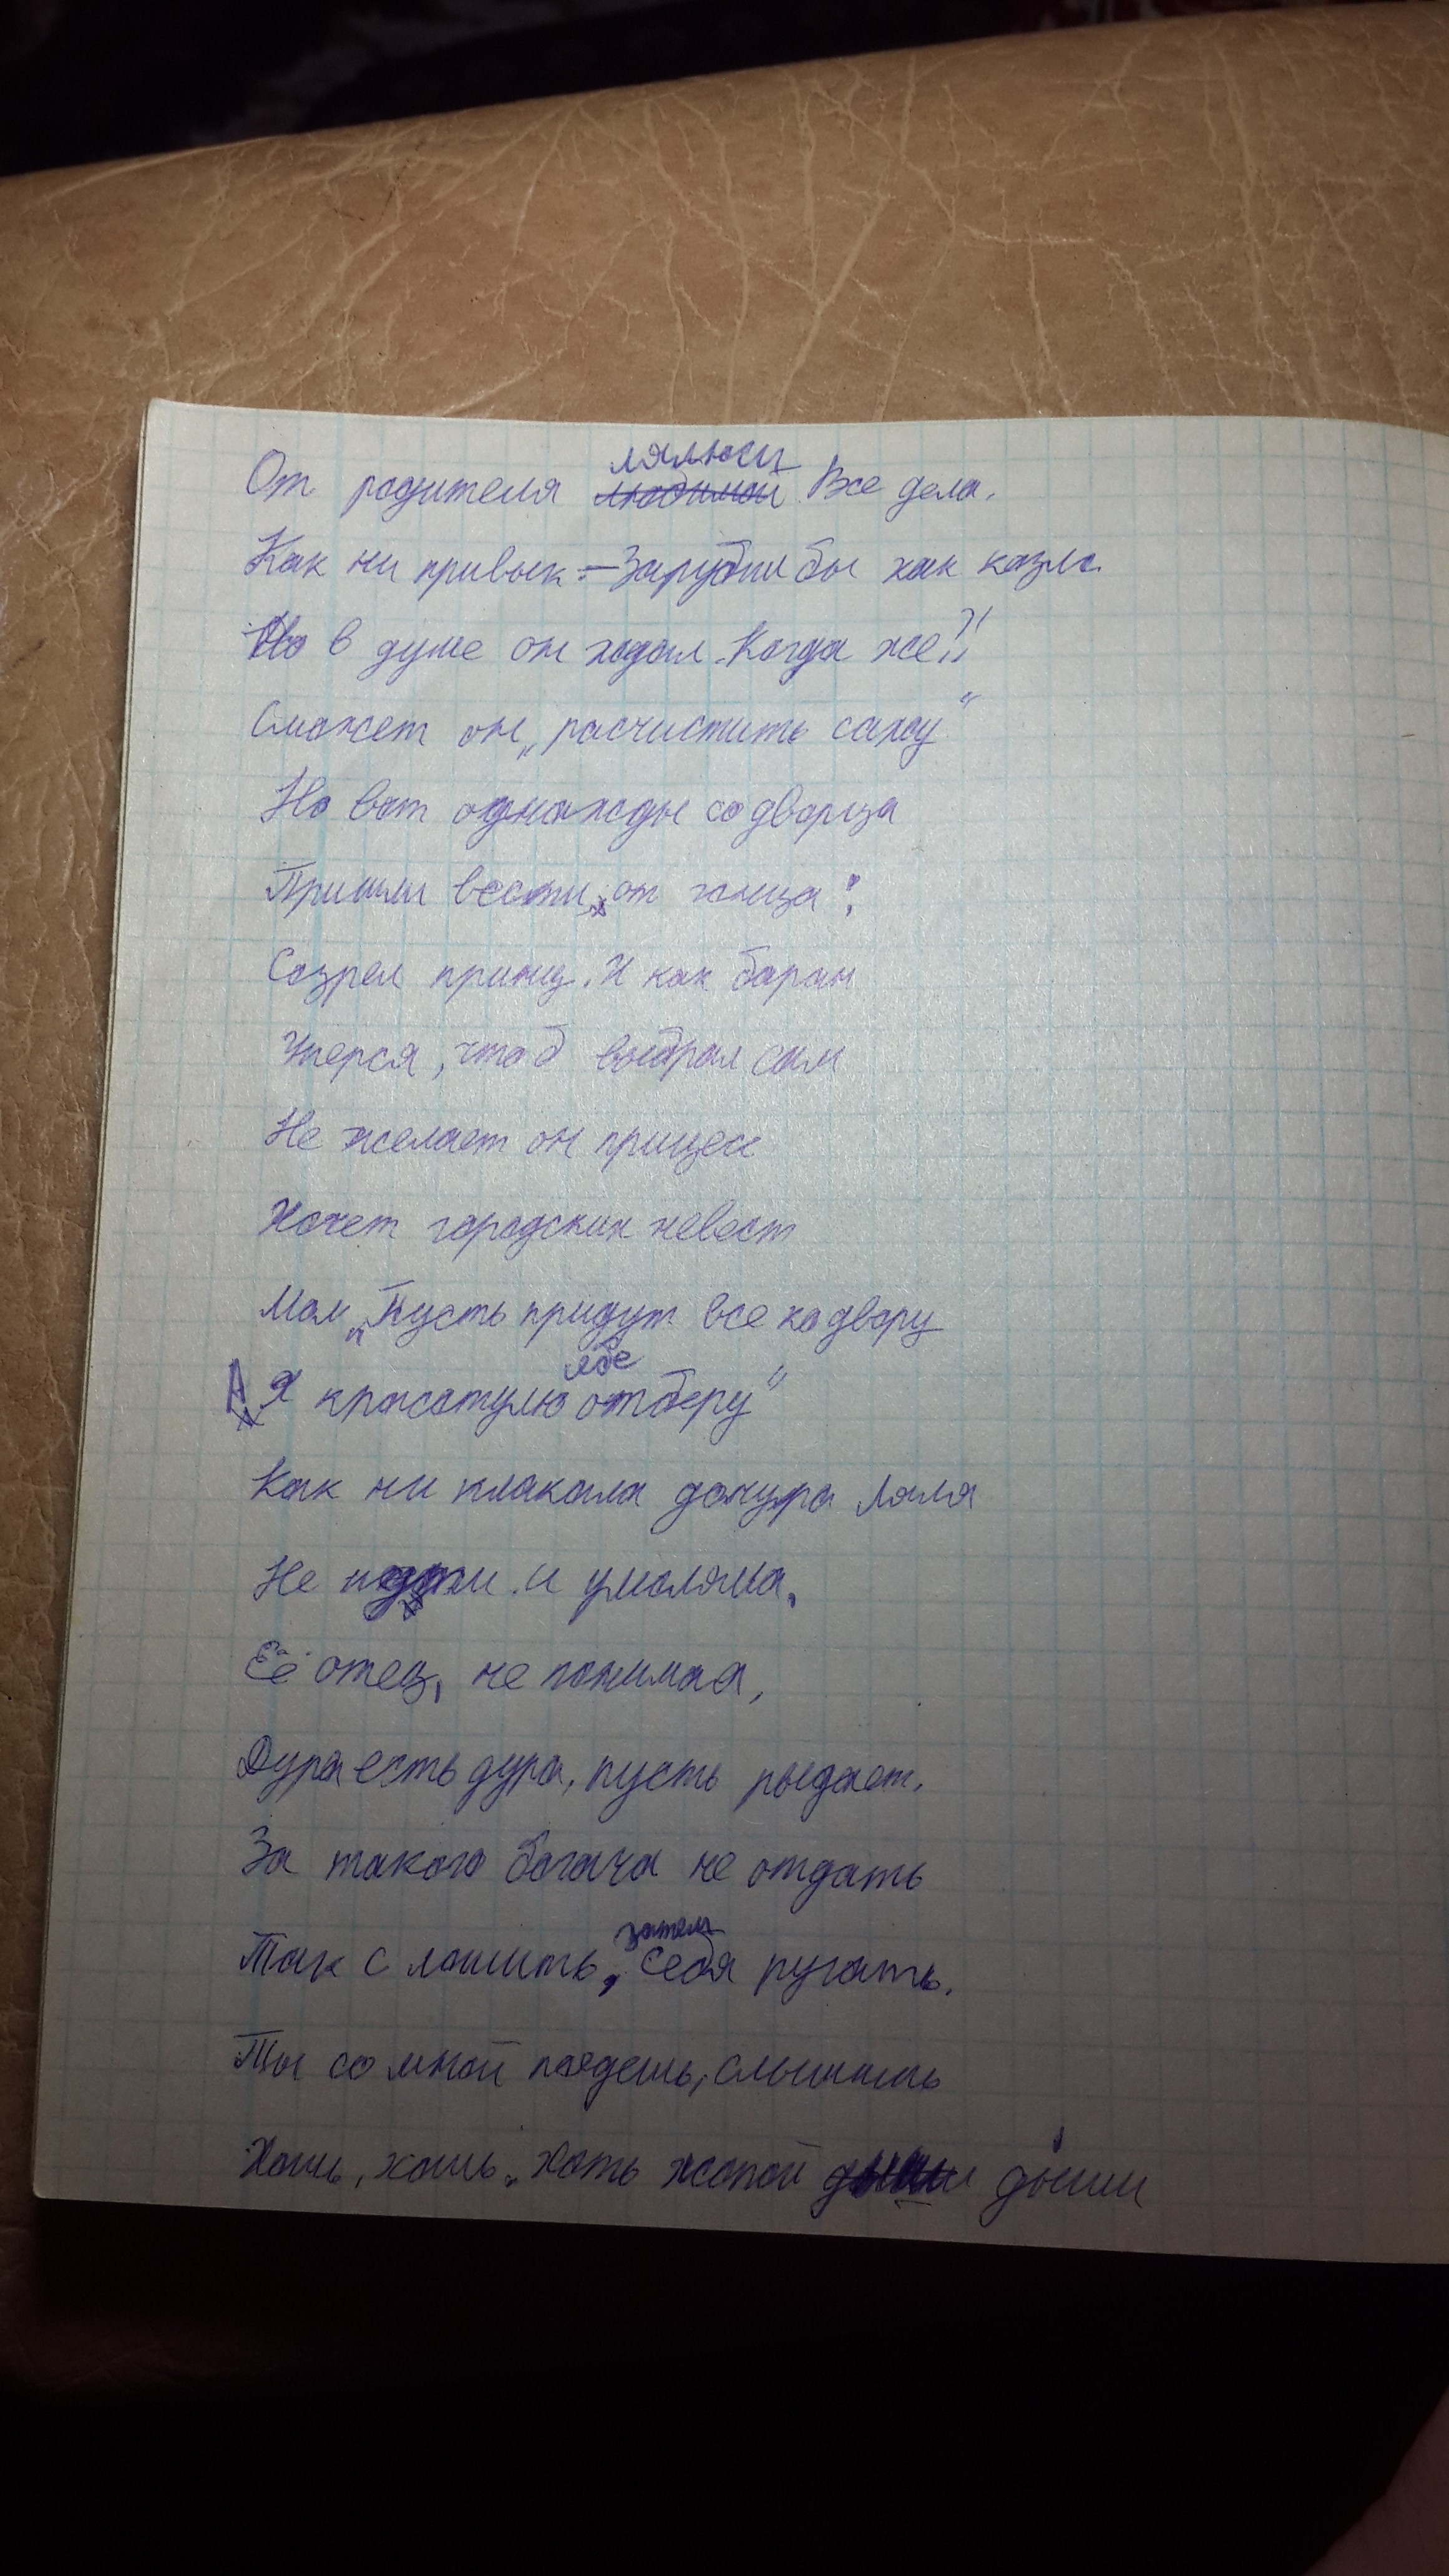 От родителя ляльки Все дела.
Как ни привык. – Зарубил бы как казла.
Но в душе он ждал. Когда же?!!
Сможет он „расчистить сажу"
Но вот однажды со дворца
Пришли вести от гонца:
Созрел принц. И как баран
Уперся, чтоб выбрал сам
Не желает он принцесс
Хочет городских невест
Мол „Пусть придут все ко двору
А Я красотулю отберу"
Как ни плакала дочура Ляля
Не пойти и умоляла,
Её отец, не понимая,
Дура есть дура, пусть рыдает.
За такого богача не отдать
Так сглошить, затем себя ругать.
Ты со мной пойдешь, слышишь
Хошь, хошь. Хоть жопой дыши